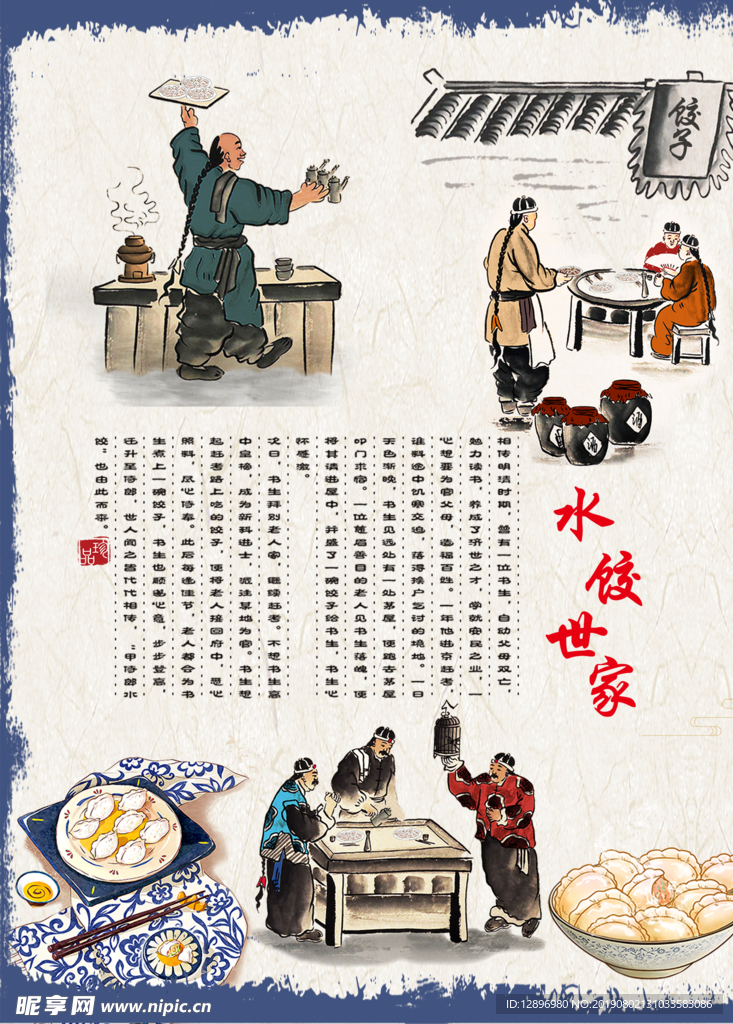 饺子
酒
酒
酒
水饺世家
相传明清时期，曾有一位书生，自幼父母双亡，
勉力读书，养成了济世之才，学就安民之业，一
心想要为官父母，造福百姓。一年他进京赶考，
谁料途中饥寒交迫，落得挨户乞讨的境地。一日
天色渐晚，书生见远处有一处茅屋，便跑去茅屋
叩门求宿。一位慈眉善目的老人见书生落魄，便
将其请进屋中，并盛了一碗饺子给书生，书生心
怀感激。
次日，书生拜别老人家，继续赶考。不想书生高
中皇榜，成为新科进士，派往某地为官。书生想
起赶考路上吃的饺子，便将老人接回府中，悉心
照料，尽心侍奉。此后每逢佳节，老人都会为书
生煮上一碗饺子，书生也顺遂心意，步步登高，
迁升至侍郎，世人闻之皆代代相传，：甲侍郎水
饺：也由此而来。
珍品
昵享网 www.nipic.cn
ID:12896980 NO:20190802131033583086